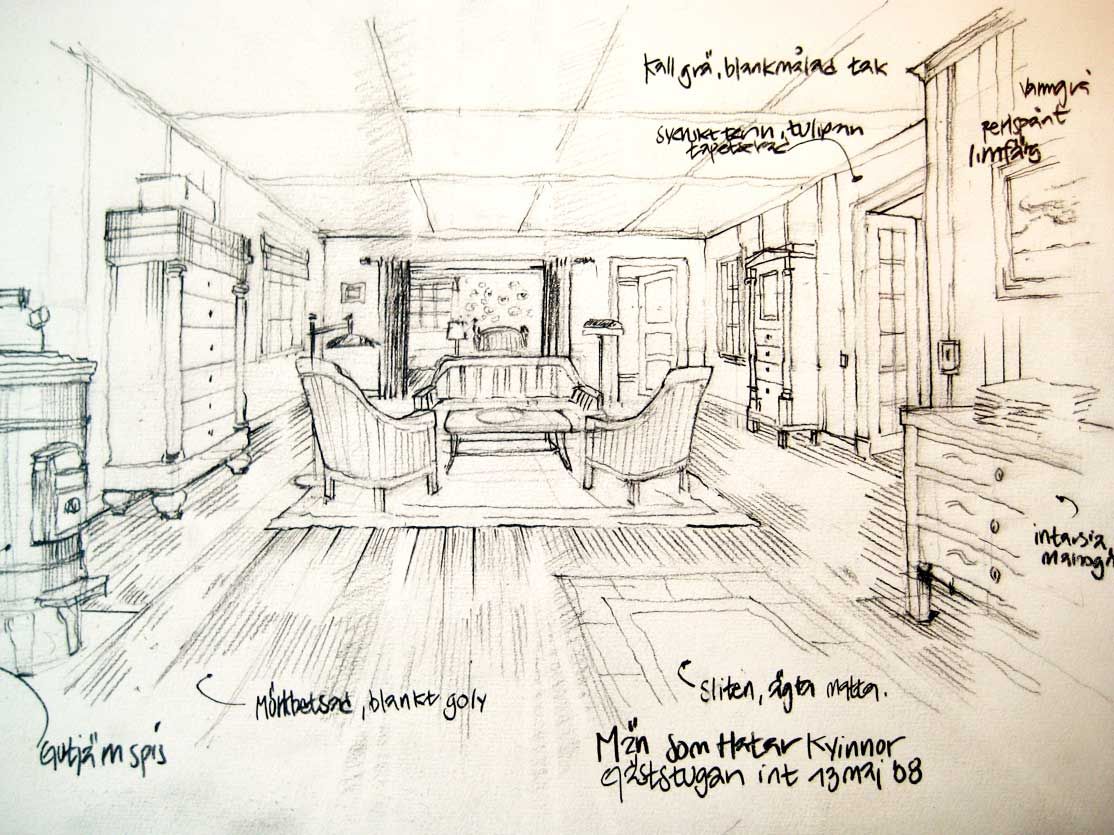 Kall grå, blankmålad tak
varmgrå
perlspånt
limfärg
Svenskt tenn, tulipan
tapetserad
intarsia,
Mörkbetsad, blankt golv
sliten, ägta matta.
Gutjärn spis
Män som Hatar Kvinnor
Gäststugan int 13 maj 08